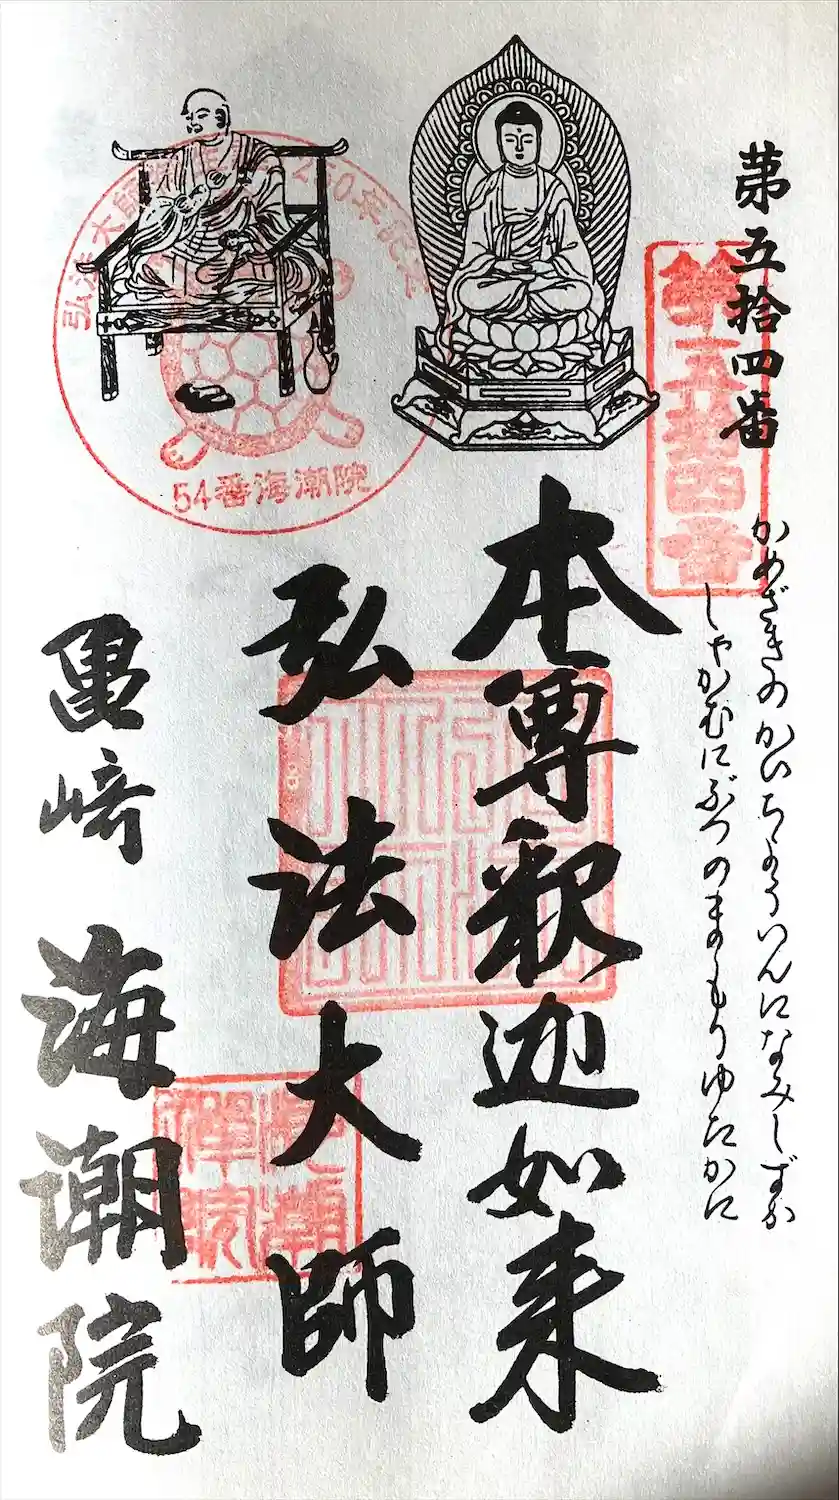 第五拾四番
第五拾四番
かめざきのかいちょういんになみしずか
しゃかむにぶつのまもりゆたかに
本尊釈迦如来
弘法大師
亀崎 海潮院
弘法大師
250年記念
54番海潮院